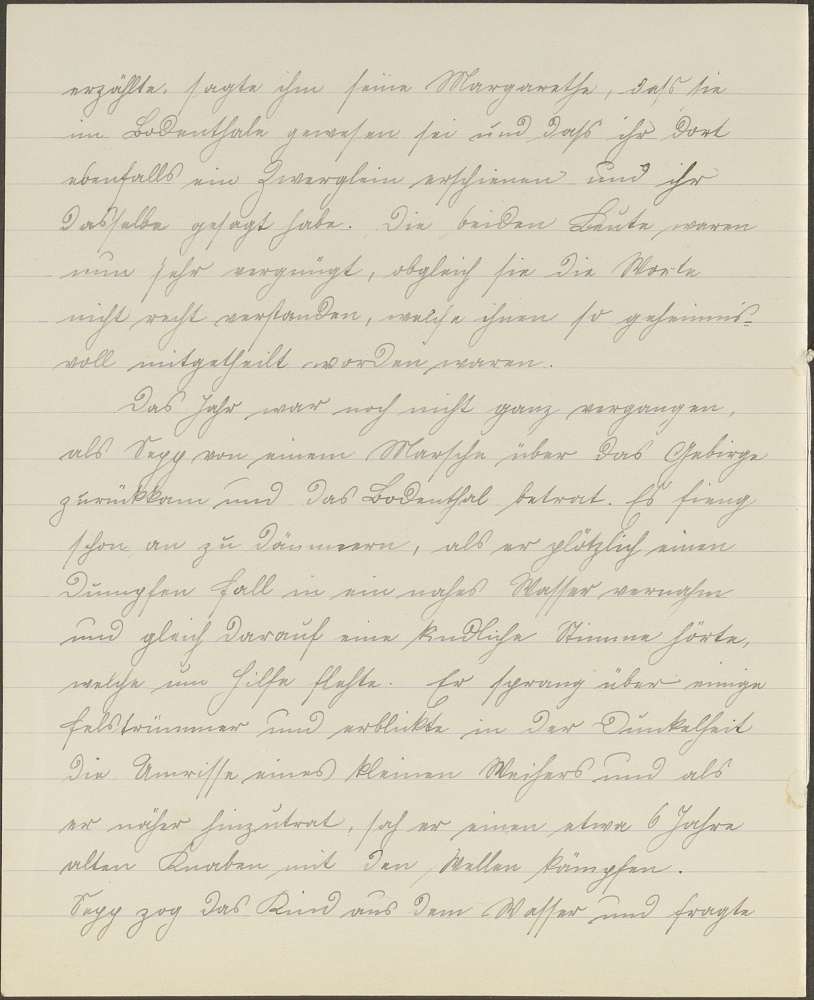 erzählte, sagte ihm seine Margarethe, daſs sie
im Bodenthale gewesen sei und daſs ihr dort
ebenfalls ein Zwerglein erschienen und ihr
dasselbe gesagt habe. Die beiden Leute waren
nun sehr vergnügt, obgleich sie die Worte
nicht recht verstanden, welche ihnen so geheimnis-
voll mitgetheilt worden waren.
Das Jahr war noch nicht ganz vergangen,
als Sepp von einem Marsche über das Gebirge
zurückkam und das Bodenthal betrat. Es fieng
schon an zu dämmern, als er plötzlich einen
dumpfen Fall in ein nahes Wasser vernahm
und gleich darauf eine kindliche Stimme hörte,
welche um Hilfe flehte. Er sprang über einige
Felstrümmer und erblickte in der Dunkelheit
die Umrisse eines kleinen Weihers und als
er näher hinzutrat, sah er einen etwa 6 Jahre
alten Knaben mit den Wellen kämpfen.
Sepp zog das Kind aus dem Wasser und fragte